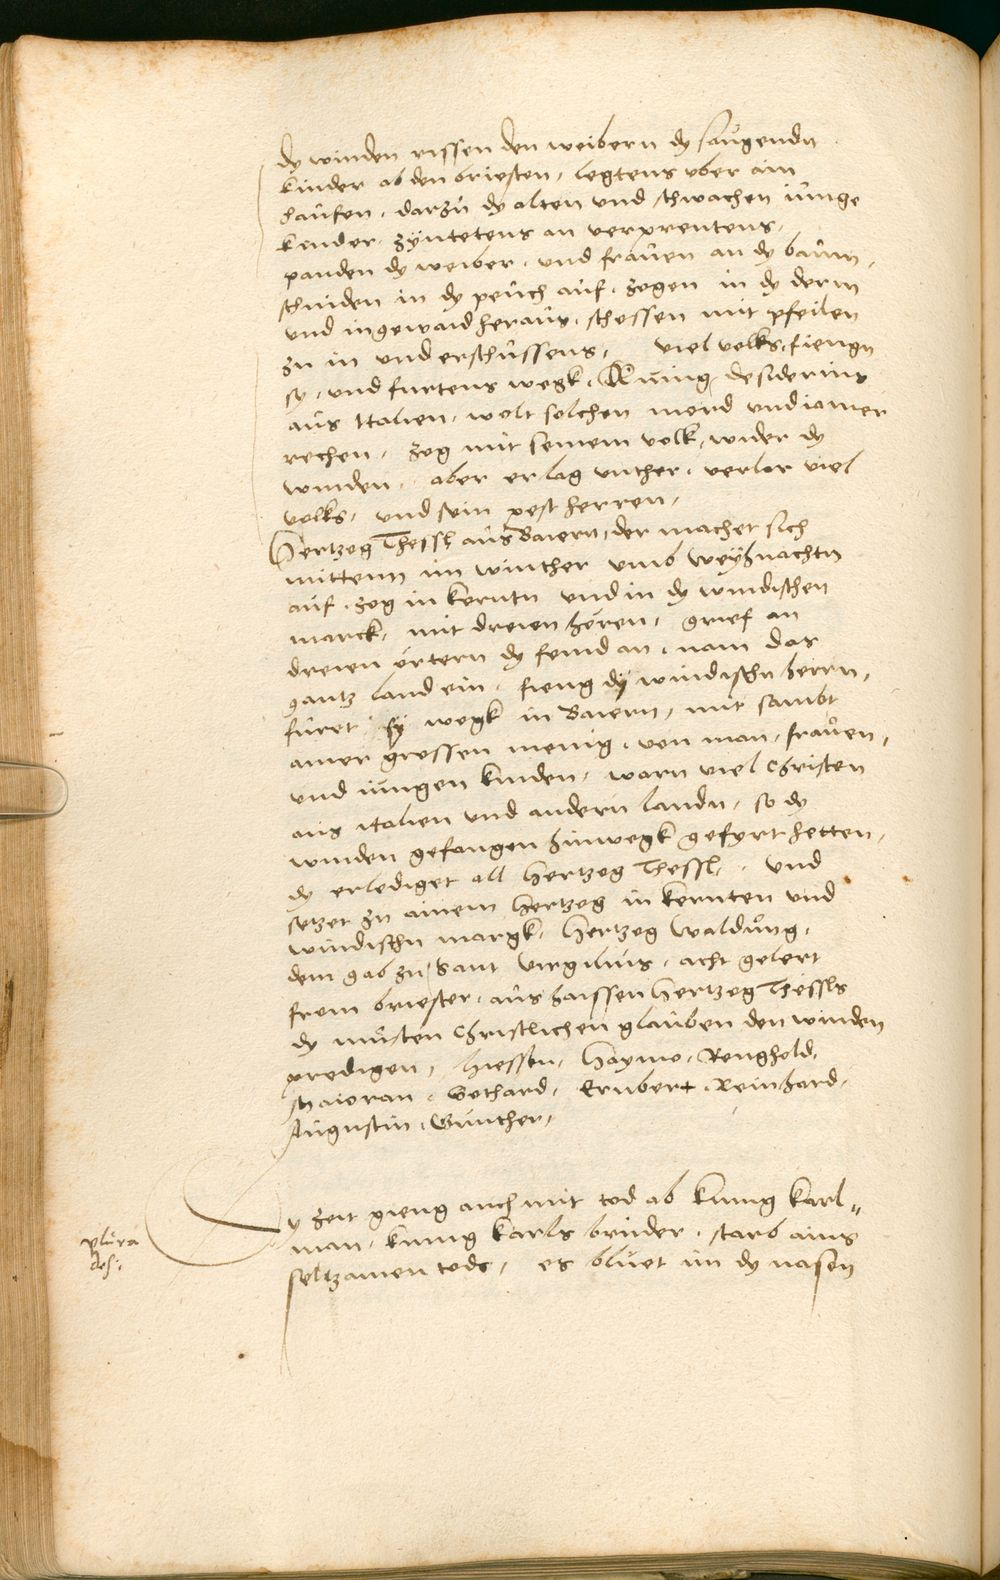 dy winden rissen den weibern dy saugendn
kinder ab den briesten, legtens uber ain
haufen, darzu dy alten und schwachen iunge
kinder, zyntetens an verprentens,
panden dy weiber, und frauen an dy baum,
schniden in dy peuch auf, zogen in dy derm
und ingewaid heraus, schossen mit pfeilen
zu in und erschussens, viel volks fiengn
sy, und furtens wegk, Kuning desiderius
aus Italien, wolt solchen mord und iamer
rechen, zog mit seinem volk, wider dy
winden, aber er lag unther, verlor viel
volks, und sein pest herren,
Hertzog Thessl aus Baiern, der machet sich
mittenn im winther umb Weyhnachtn
auf, zog in kerntn und in dy windischen
marck, mit dreien heren, grief an
dreien örtern dy feind an, nam das
gantz land ein, fieng dy windischn herrn,
füret sy wegk in Baiern, mit sambt
ainer grossen menig, von man, frauen,
und iungen kinden, warn viel Christen
aus italien und andern landn, so dy
winden gefangen hinwegk gefyrt hetten,
dy erlediget all Hertzog Thessl, und
setzet zu ainem Hertzog in kernten und
windischn margk, Hertzog Waldung,
dem gab zu Sant Virgilius, acht gelert
from briester, aus haissen Hertzog Thessls
dy musten Christlichen glauben den winden
predigen, hiessen, Haymo, Renghold,
Maioran, Gothard, Erubert, Reinhard,
Augustin, Günther,
Dy zeit gieng auch mit tod ab kunig Karl=
man, kunig Karls bruder, starb ains
seltzamen tods, es bluet im dy nasen
plura